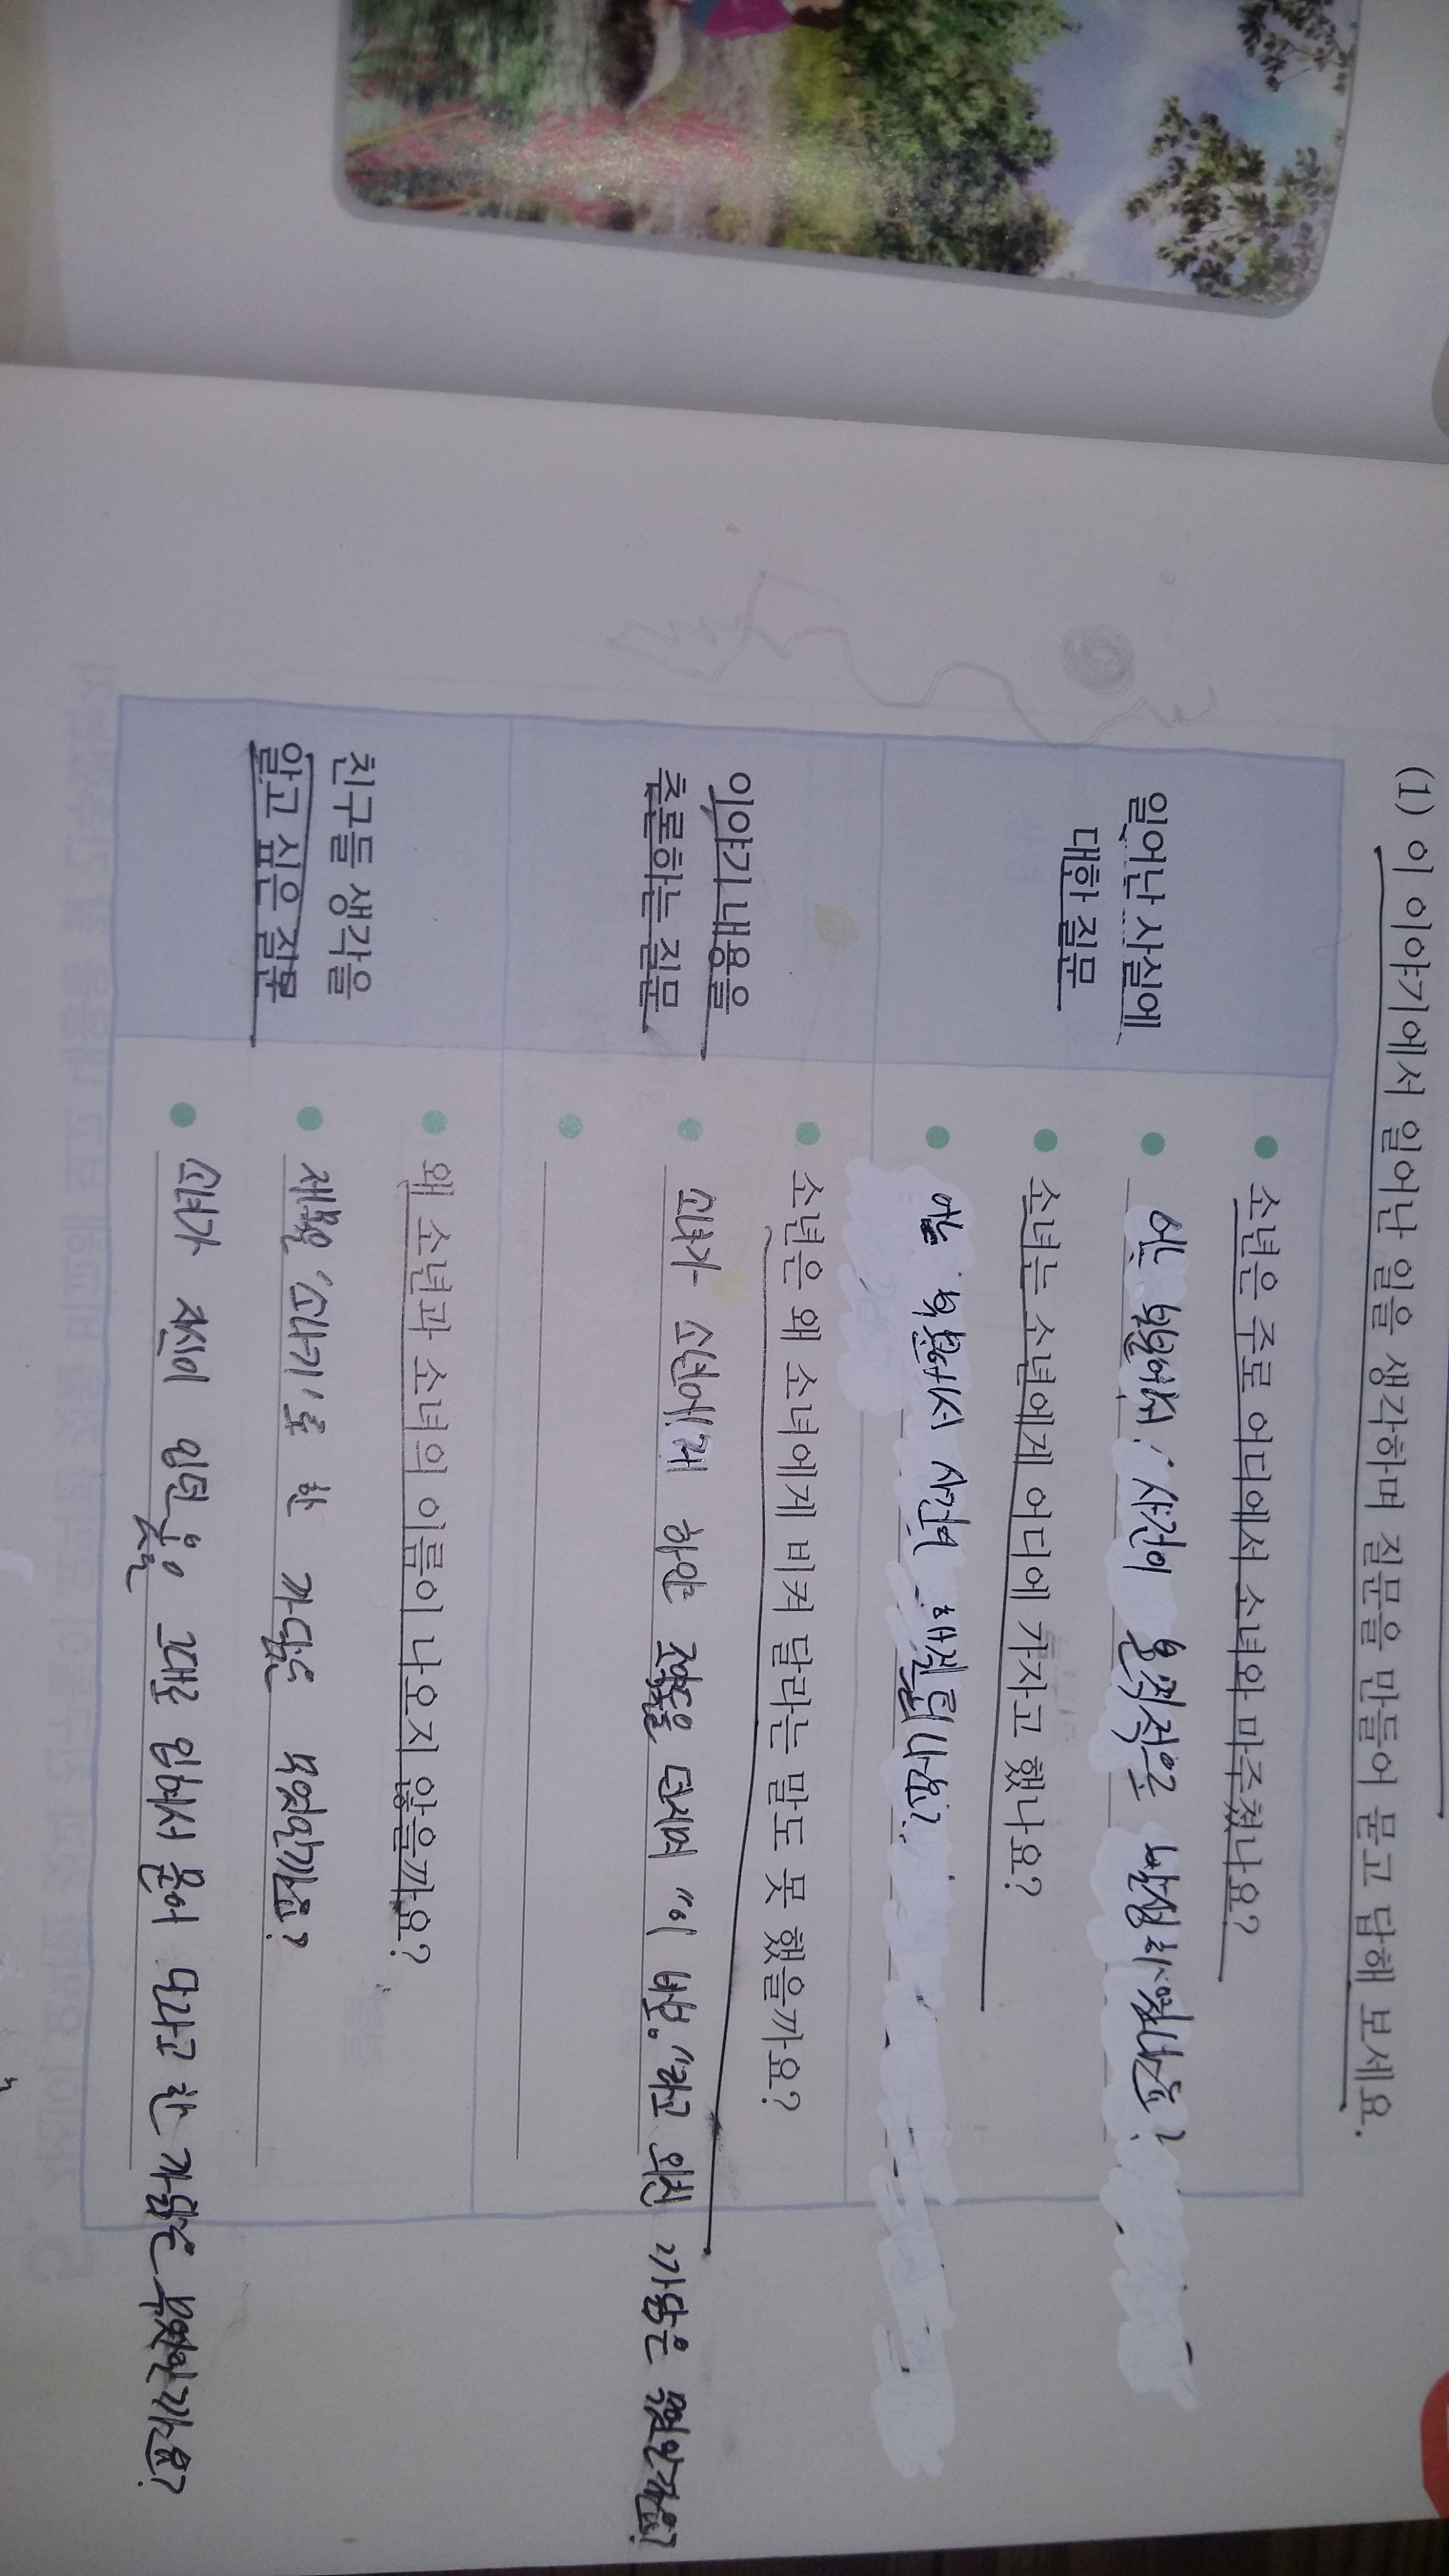 (1) 이 이야기에서 일어난 일을 생각하며 질문을 만들어 묻고 답해 보세요.
일어난 사실에
대한 질문
소년은 주로 어디에서 소녀와 마주쳤나요?
어느 부분에서 사건이 본격적으로 발생하였나요?
소녀는 소년에게 어디에 가자고 했나요?
어느 부분에서 사건이 해결됬나요?
이야기 내용을
추론하는 질문
소년은 왜 소녀에게 비켜 달라는 말도 못 했을까요?
소녀가 소년에게 하얀 조약돌을 던지며 "이 바보."라고 외친 까닭은 무엇일까요?
친구들 생각을
알고 싶은 질문
왜 소년과 소녀의 이름이 나오지 않을까요?
제목을 '소나기'로 한 까닭은 무엇일까요?
소녀가 자신이 입던 옷을 그대로 입혀서 묻어 달라고 한 까닭은 무엇일까요?